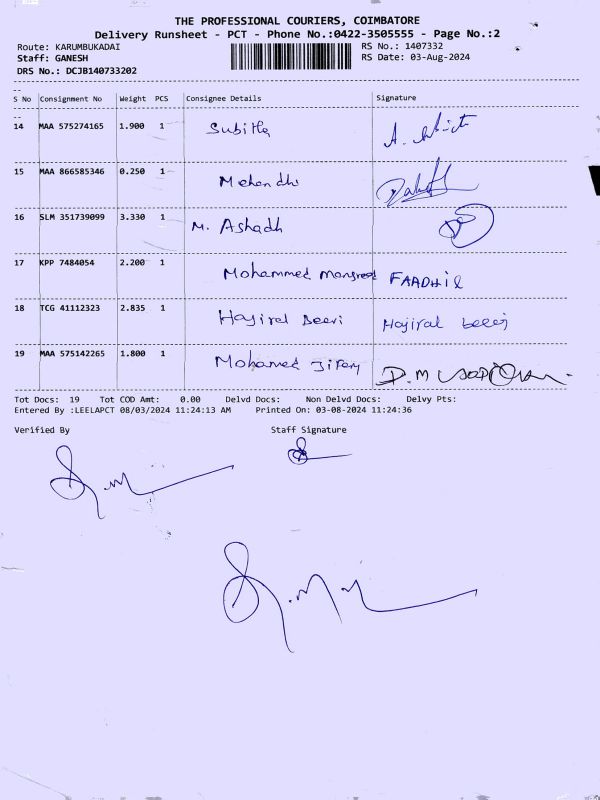 THE PROFESSIONAL COURIERS, COIMBATORE
Delivery Runsheet - PCT - Phone No.:0422-3505555 - Page No.:2
Route: KARUMBUKADAI RS No.: 1407332
Staff: GANESH RS Date: 03-Aug-2024
DRS No.: DCJB140733202
S No Consignment No Weight PCS Consignee Details Signature
14 MAA 575274165 1.900 1 Subitha
15 MAA 866585346 0.250 1 Mehendhi
16 SLM 351739099 3.330 1 M. Ashadh
17 KPP 7484054 2.200 1 Mohammed FAADHIL
18 TCG 41112323 2.835 1 Hajiral Beevi Hajiral beevi
19 MAA 575142265 1.800 1 Mohamed D.M
Tot Docs: 19 Tot COD Amt: 0.00 Delvd Docs: Non Delvd Docs: Delvy Pts:
Entered By :LEELAPCT 08/03/2024 11:24:13 AM Printed On: 03-08-2024 11:24:36
Verified By Staff Signature